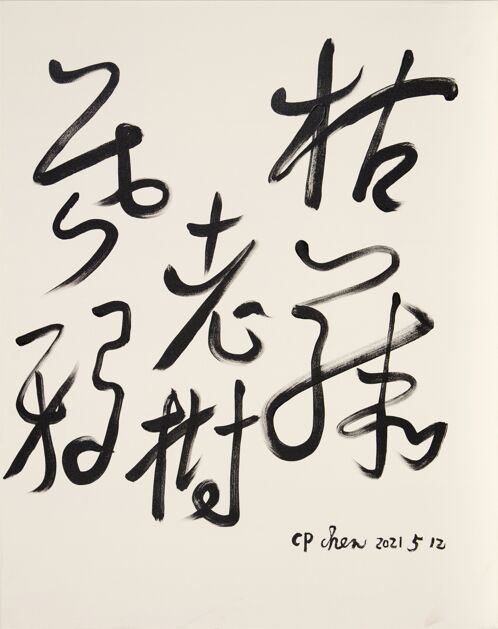 枯藤
老樹
昏鴉
CP chen 2021 5 12